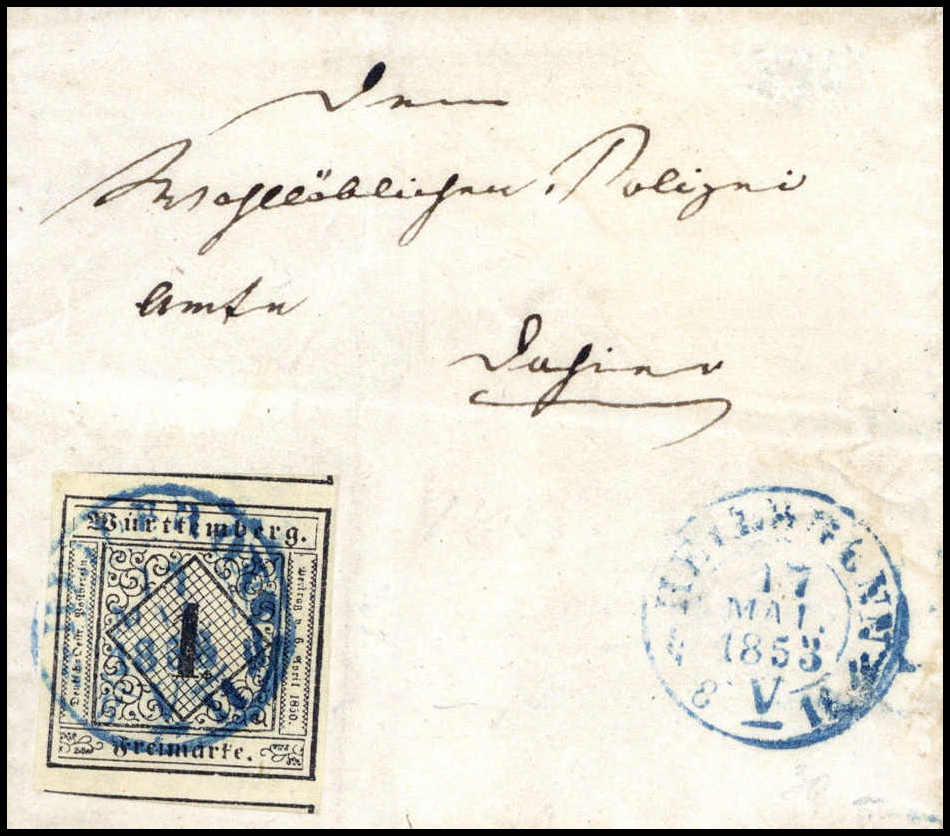 Dem
Wohllöblichen Polizei
Amte
Dahier
Württemberg.
Deutsch-Oestr. Postverein.
1
Vertrag v. 6. April 1850.
Freimarke.
HEILBRONN
17
MAI.
1853
V